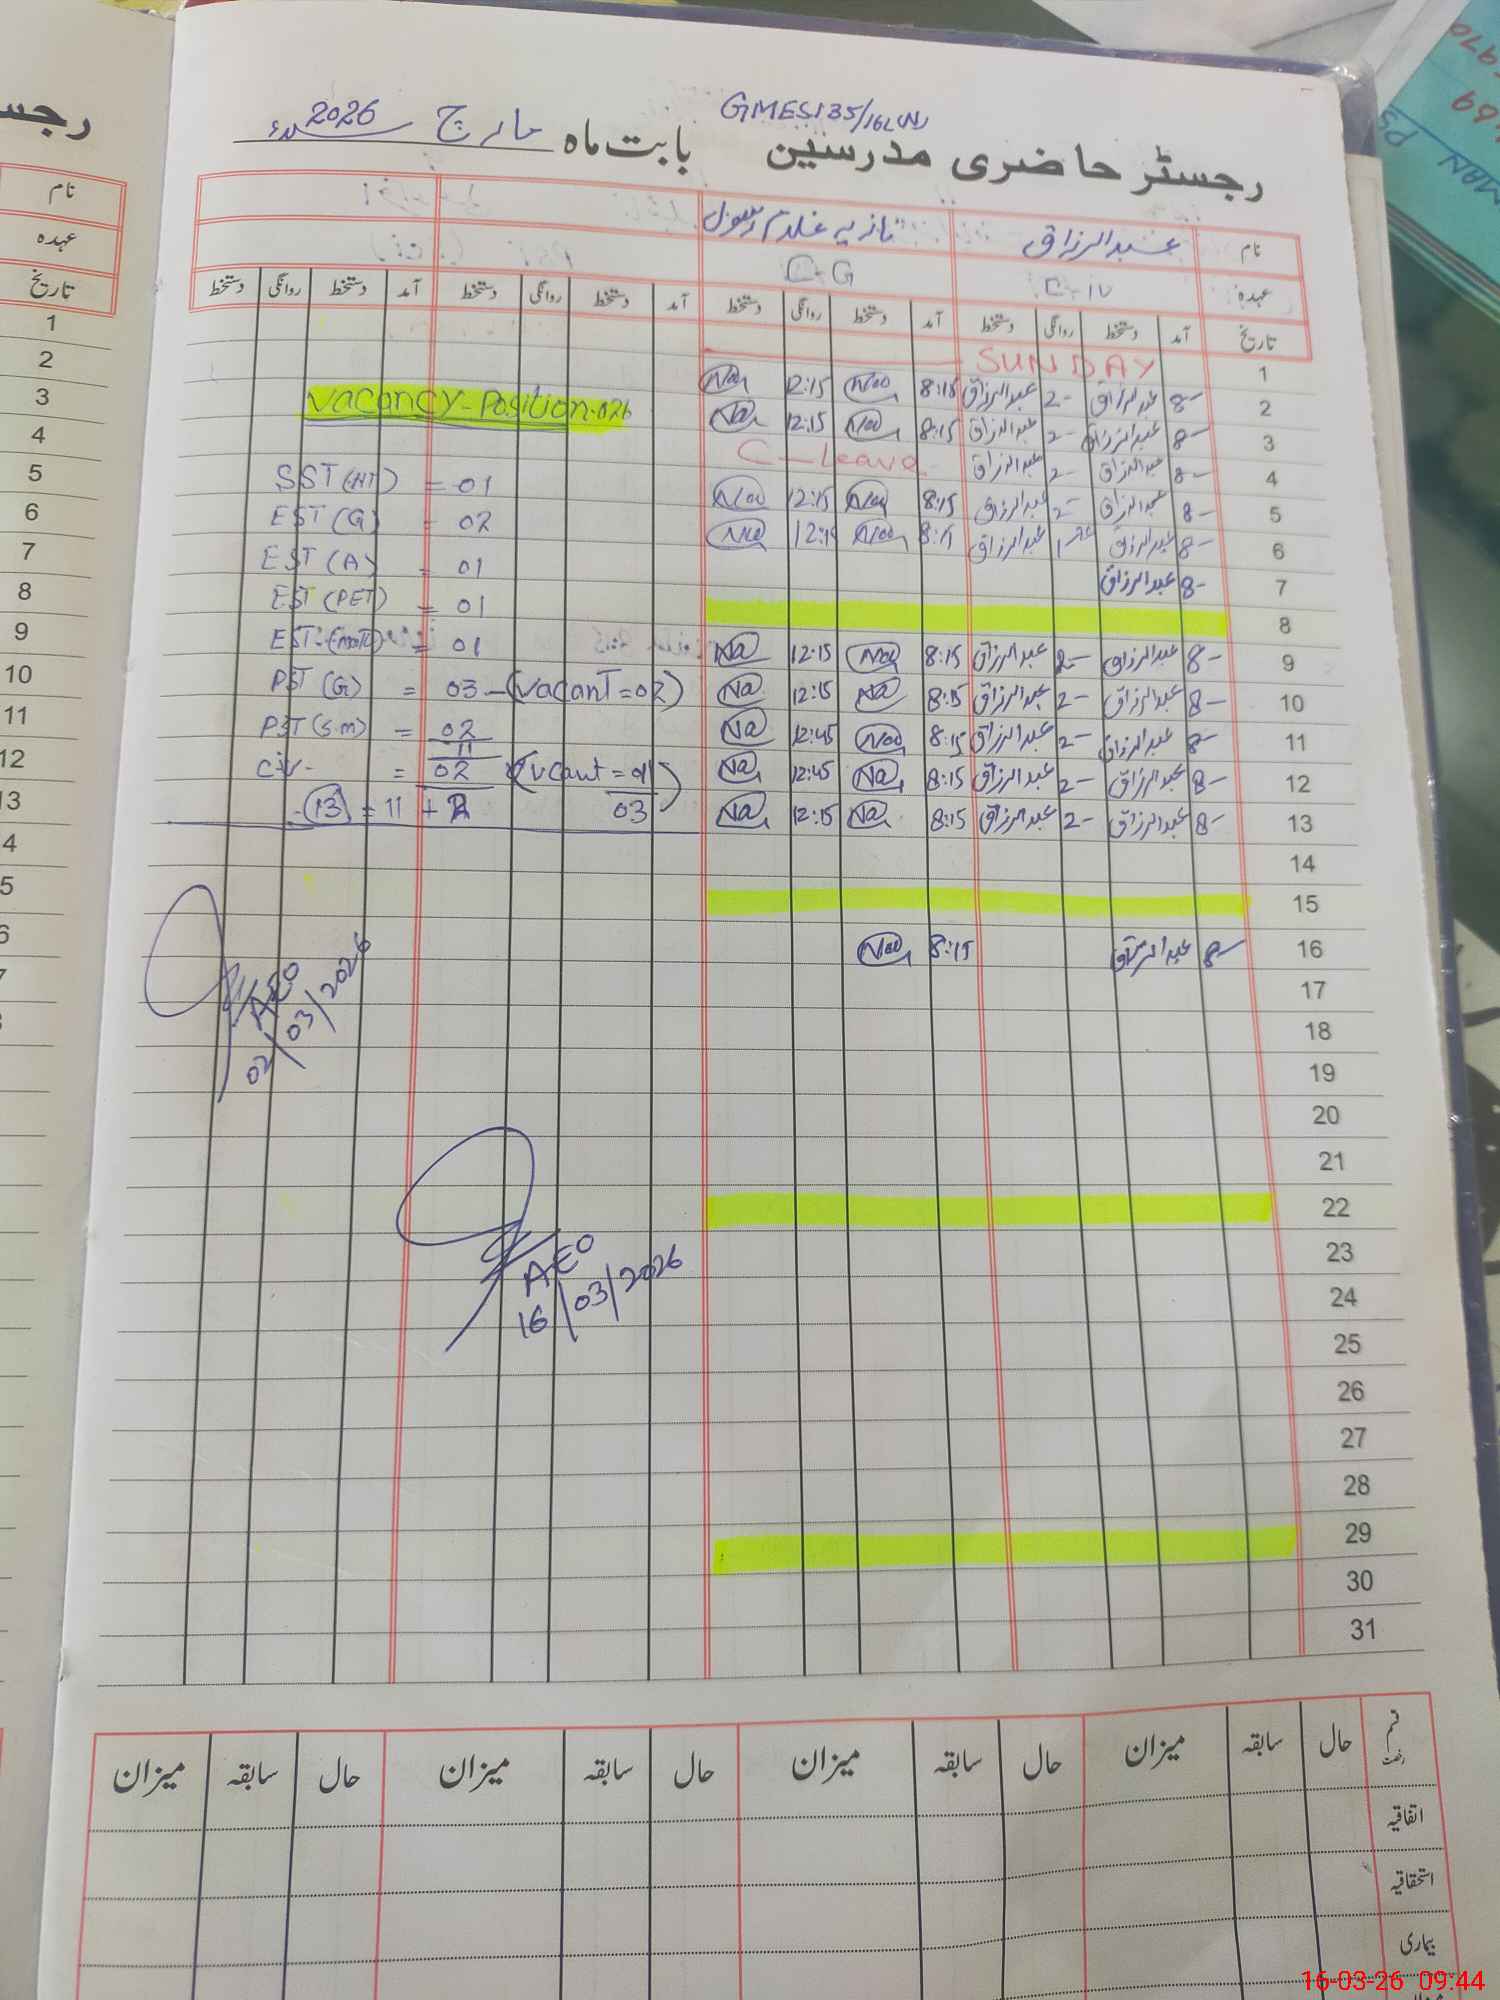 GMES135/16L(N)
رجسٹر حاضری مدرسین بابت ماہ مارچ 2026ء
نام عبدالرزاق نازیہ غلام رسول
عہدہ C-IV C-G
تاریخ آمد دستخط روانگی دستخط آمد دستخط روانگی دستخط آمد دستخط روانگی دستخط آمد دستخط روانگی دستخط
1 SUNDAY
2 8- عبدالرزاق 2- عبدالرزاق 8:15 12:15
3 8- عبدالرزاق 2- عبدالرزاق 8:15 12:15
4 8- عبدالرزاق 2- عبدالرزاق C-Leave
5 8- عبدالرزاق 2- عبدالرزاق 8:15 12:15
6 8- عبدالرزاق عبدالرزاق
7 8- عبدالرزاق
8
9 8- عبدالرزاق 2- عبدالرزاق 8:15 12:15
10 8- عبدالرزاق 2- عبدالرزاق 8:15 12:15
11 8- عبدالرزاق 2- عبدالرزاق 8:15 12:45
12 8- عبدالرزاق 2- عبدالرزاق 8:15 12:45
13 8- عبدالرزاق 2- عبدالرزاق 8:15 12:15
14
15
16 8- عبدالرزاق 8:15
17
18
19
20
21
22
23
24
25
26
27
28
29
30
31
Vacancy-Position-026
SST(HT) = 01
EST(G) = 02
EST(A) = 01
EST(PET) = 01
EST = 01
PST(G) = 03 - (vacanT = 02)
PST(S.M) = 02
11
Civ- = 02 (vcant = 01)
- 13 = 11 + 2 03
AEO
02/03/2026
AEO
16/03/2026
قسم رخصت حال سابقہ میزان حال سابقہ میزان حال سابقہ میزان حال سابقہ میزان
اتفاقیہ
استحقاقیہ
بیماری
رجس
نام
عہدہ
تاریخ
1
2
3
4
5
6
7
8
9
10
11
12
13
4
5
6
7
16-03-26 09:44